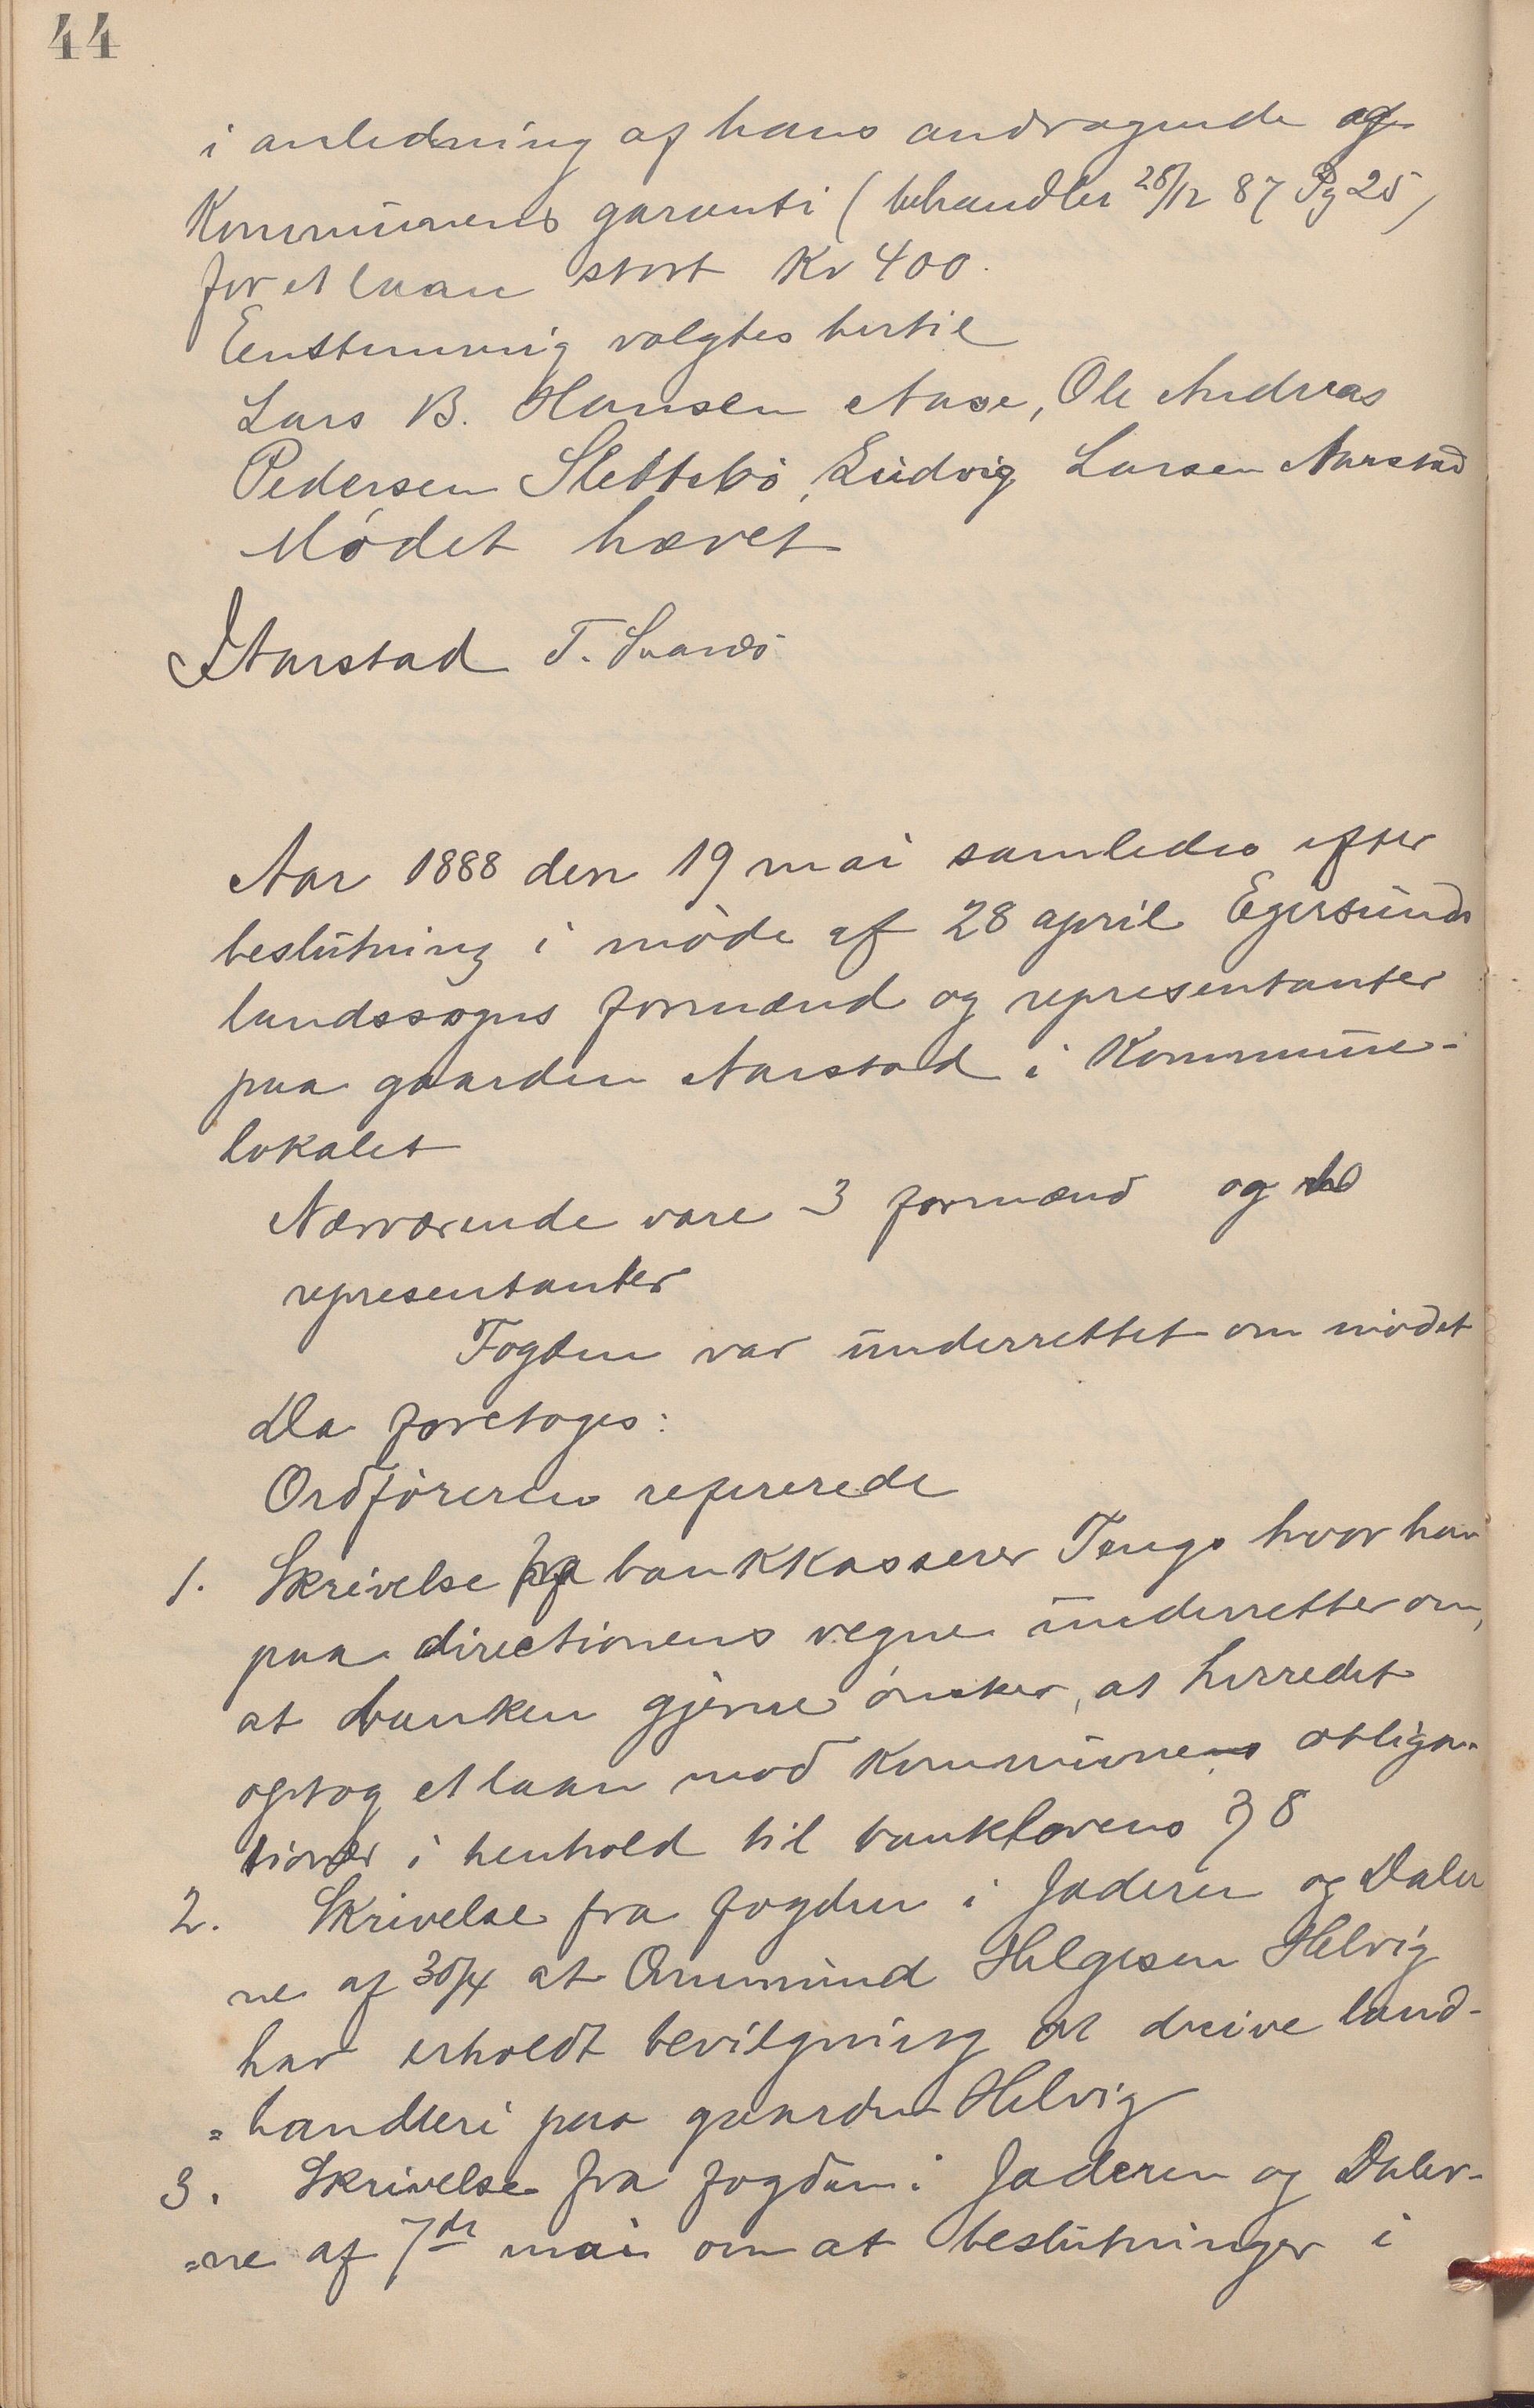 44
i anledning af hans andragende og
Kommunens garanti (behandlet 28/12 87 Pg 25)
for et laan stort Kr 400.
Eenstemmig valgtes hertil
Lars B. Hansen Aase, Ole Andreas
Pedersen Slettebö, Ludvig Larsen Aarstad
Mödet hævet
Aarstad T. Svanes
Aar 1888 den 19 mai samledes efter
beslutning i möde af 28 april Egersunds
landssogns formænd og representanter
paa gaarden Aarstad i Kommune-
lokalet
Nærværende vare 3 formænd og
representanter
Fogden var underrettet om mödet
Da foretoges:
Ordföreren refererede
1. Skrivelse fra bankkasserer Tengs hvor han
paa directionens vegne underretter om,
at banken gjerne önsker, at herredet
optog et laan mod Kommunens obliga-
tioner i henhold til banklovens § 8
2. Skrivelse fra fogden i Jæderen og Daler
ne af 30/4 at Ommund Helgesen Helvig
har erholdt bevilgning at drive land-
=handleri paa gaarden Helvig
3. Skrivelse fra fogden i Jæderen og Daler-
=ne af 7de mai om at beslutninger i